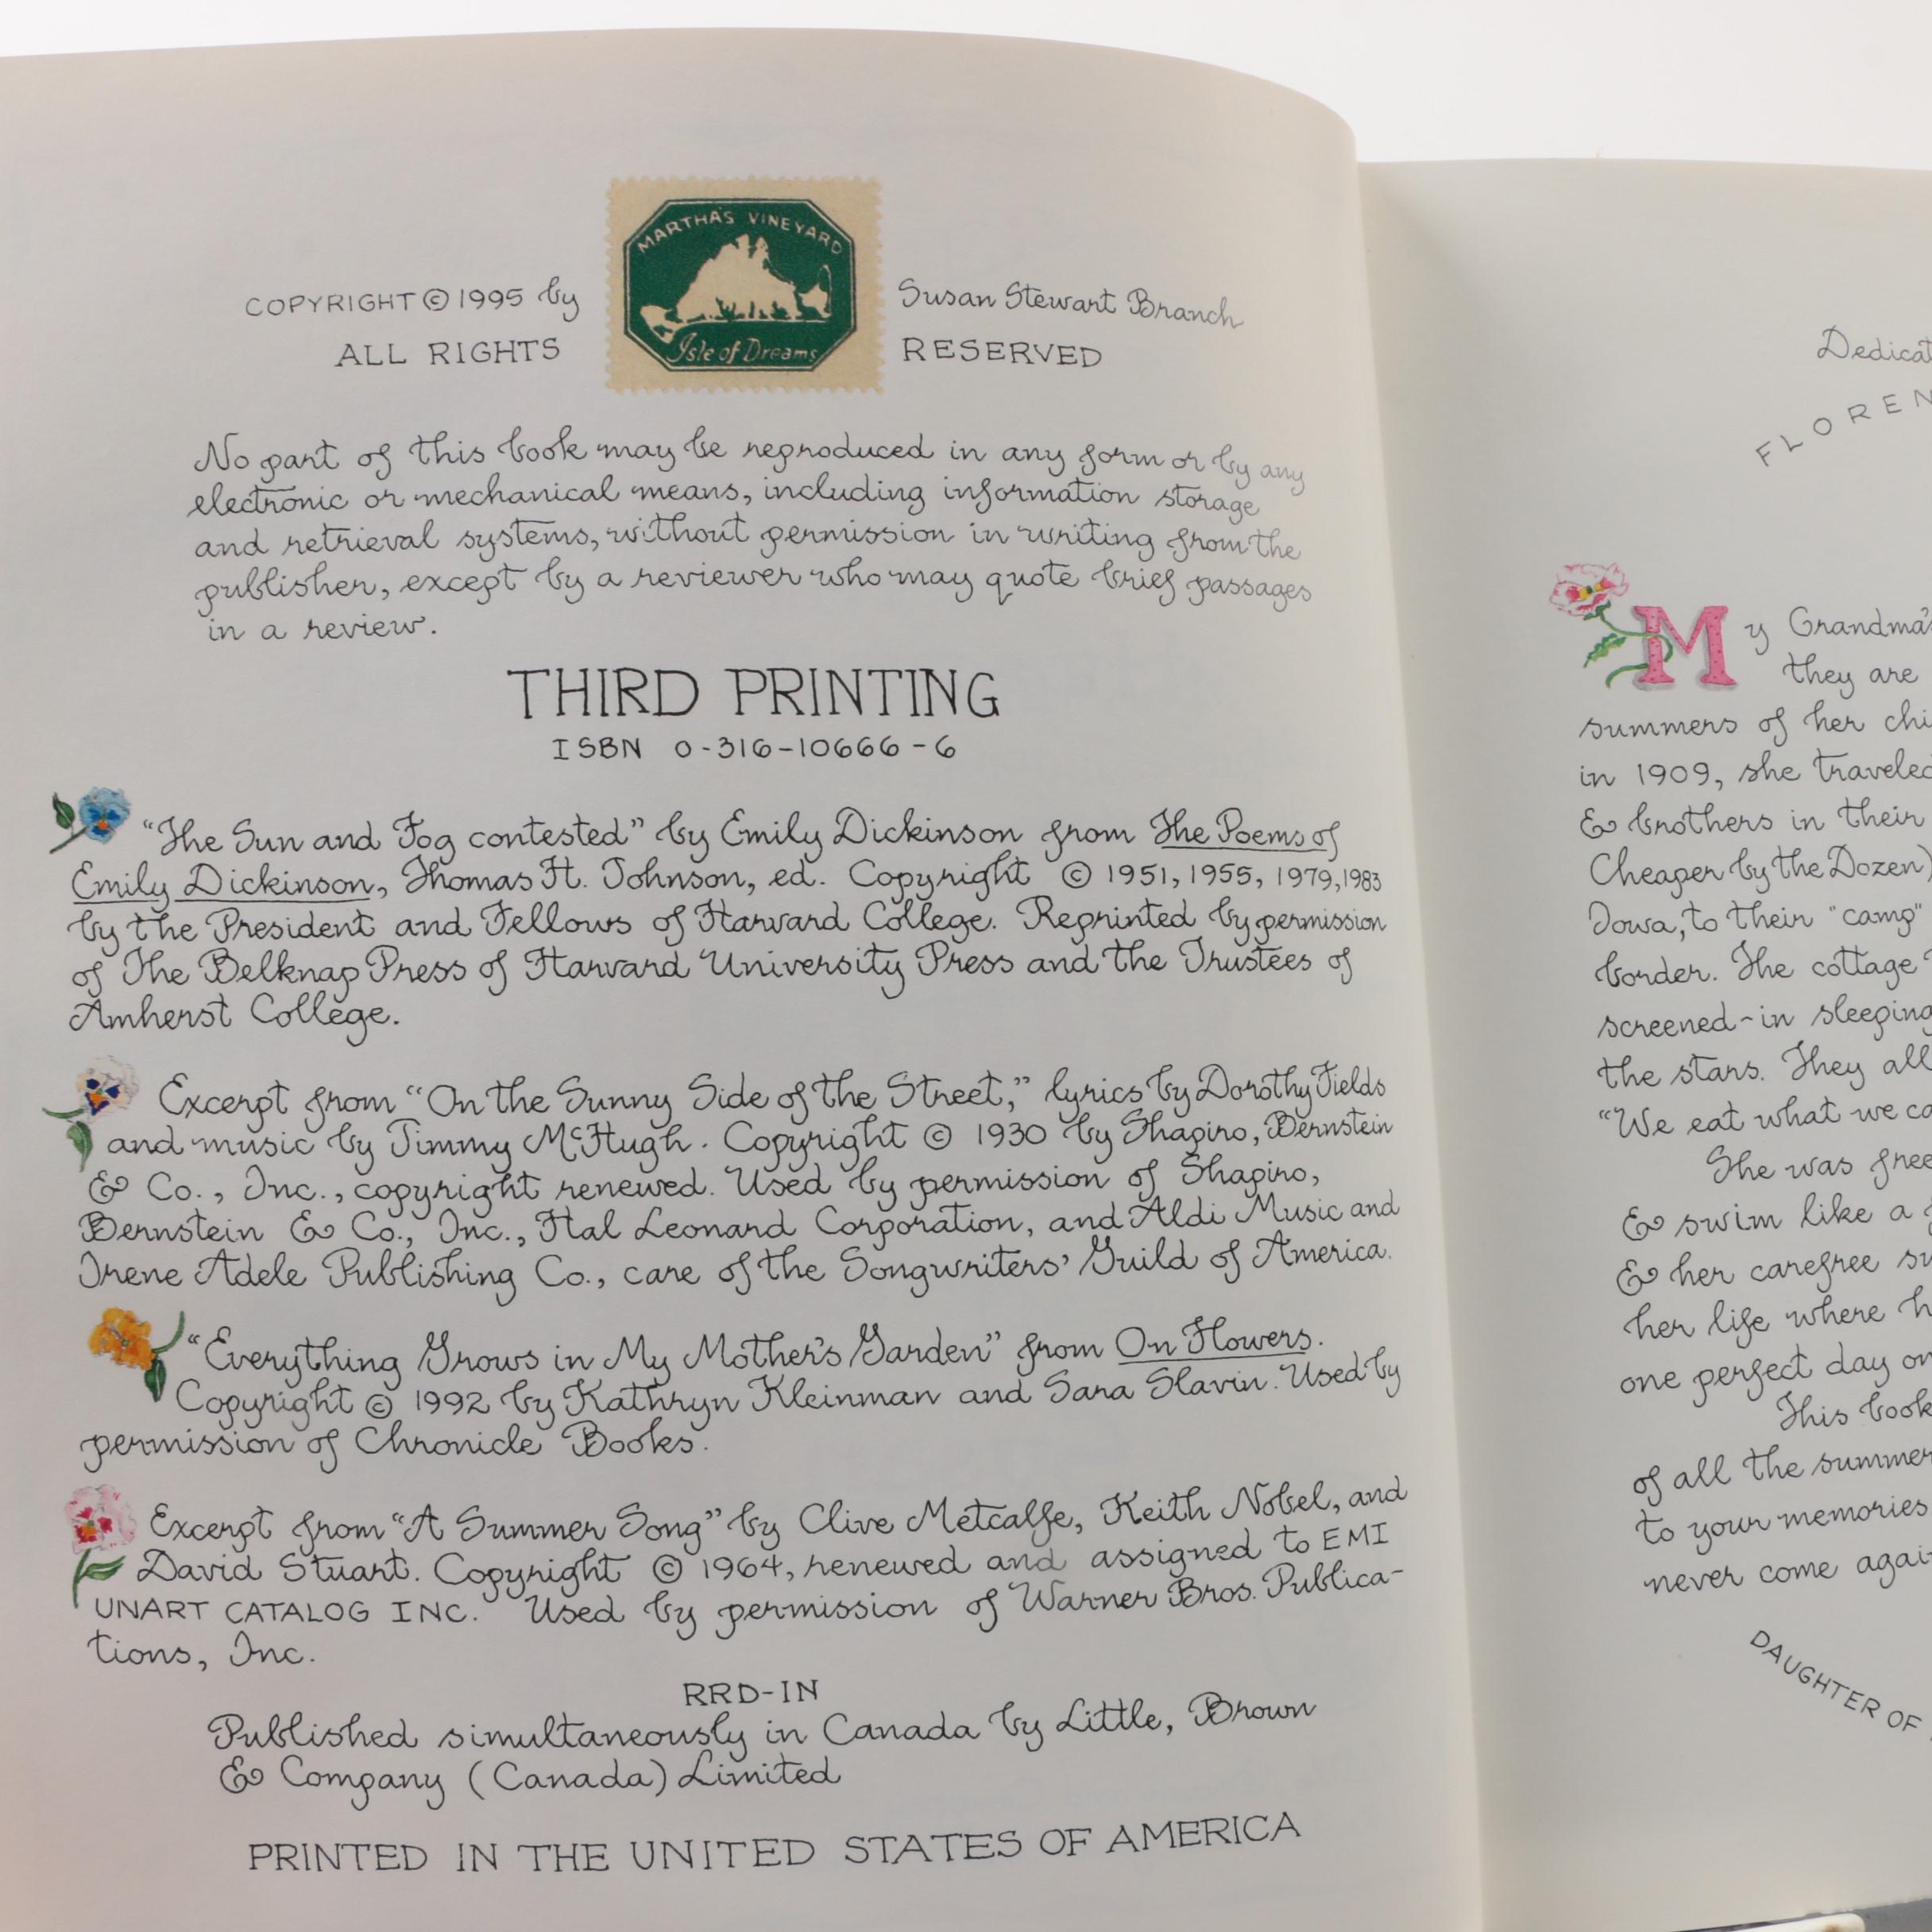 MARTHA'S VINEYARD
Isle of Dreams
COPYRIGHT © 1995 by Susan Stewart Branch
ALL RIGHTS RESERVED
No part of this book may be reproduced in any form or by any
electronic or mechanical means, including information storage
and retrieval systems, without permission in writing from the
publisher, except by a reviewer who may quote brief passages
in a review.
THIRD PRINTING
ISBN 0-316-10666-6
"The Sun and Fog contested" by Emily Dickinson from The Poems of
Emily Dickinson, Thomas H. Johnson, ed. Copyright © 1951, 1955, 1979, 1983
by the President and Fellows of Harvard College. Reprinted by permission
of The Belknap Press of Harvard University Press and the Trustees of
Amherst College.
Excerpt from "On the Sunny Side of the Street," lyrics by Dorothy Fields
and music by Jimmy McHugh. Copyright © 1930 by Shapiro, Bernstein
& Co., Inc., copyright renewed. Used by permission of Shapiro,
Bernstein & Co., Inc., Hal Leonard Corporation, and Aldi Music and
Irene Adele Publishing Co., care of the Songwriters' Guild of America.
"Everything Grows in My Mother's Garden" from On Flowers.
Copyright © 1992 by Kathryn Kleinman and Sara Slavin. Used by
permission of Chronicle Books.
Excerpt from "A Summer Song" by Clive Metcalfe, Keith Nobel, and
David Stuart. Copyright © 1964, renewed and assigned to EMI
UNART CATALOG INC. Used by permission of Warner Bros. Publica-
tions, Inc.
RRD-IN
Published simultaneously in Canada by Little, Brown
& Company (Canada) Limited
PRINTED IN THE UNITED STATES OF AMERICA
My Grandma's
they are
summers of her
in 1909, she
& brothers in their
Cheaper by the Dozen)
Iowa, to their "camp"
border. The cottage
screened-in
the stars. They all
"We eat what we
She was
& swim like a
& her carefree
her life where
one perfect day
This
of all the
to your memories
never come
DAUGHTER OF